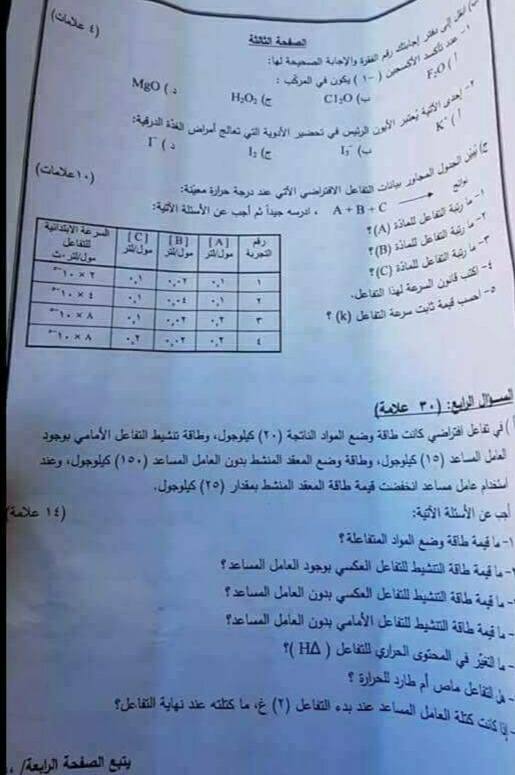 الصفحة الثالثة
(٤ علامات)
ب) انقل إلى دفتر إجابتك رقم الفقرة والإجابة الصحيحة لها:
١- عدد تأكسد الأكسجين (-١) يكون في المركب:
أ) F₂O ب) Cl₂O ج) H₂O₂ د) MgO
٢- إحدى الآتية يُعتبر الأيون الرئيس في تحضير الأدوية التي تعالج أمراض الغدة الدرقية:
أ) K⁺ ب) I₃⁻ ج) I₂ د) I⁻
ج) يُبيّن الجدول المجاور بيانات التفاعل الافتراضي الآتي عند درجة حرارة معيّنة: (١٠ علامات)
A + B + C → نواتج ، ادرسه جيداً ثم أجب عن الأسئلة الآتية:
١- ما رتبة التفاعل للمادة (A)؟
٢- ما رتبة التفاعل للمادة (B)؟
٣- ما رتبة التفاعل للمادة (C)؟
٤- اكتب قانون السرعة لهذا التفاعل.
٥- احسب قيمة ثابت سرعة التفاعل (k) ؟
رقم التجربة [A] مول/لتر [B] مول/لتر [C] مول/لتر السرعة الابتدائية للتفاعل مول/لتر.ث
١ ٠,١ ٠,٠٢ ٠,١ ٢ × ١٠
٢ ٠,١ ٠,٠٤ ٠,١ ٤ × ١٠
٣ ٠,٢ ٠,٠٢ ٠,١ ٨ × ١٠
٤ ٠,٢ ٠,٠٢ ٠,٢ ٨ × ١٠
السؤال الرابع: (٣٠ علامة)
أ) في تفاعل افتراضي كانت طاقة وضع المواد الناتجة (٢٠) كيلوجول، وطاقة تنشيط التفاعل الأمامي بوجود
العامل المساعد (١٥) كيلوجول، وطاقة وضع المعقد المنشط بدون العامل المساعد (١٥٠) كيلوجول، وعند
استخدام عامل مساعد انخفضت قيمة طاقة المعقد المنشط بمقدار (٢٥) كيلوجول.
أجب عن الأسئلة الآتية: (١٤ علامة)
١- ما قيمة طاقة وضع المواد المتفاعلة؟
- ما قيمة طاقة التنشيط للتفاعل العكسي بوجود العامل المساعد؟
- ما قيمة طاقة التنشيط للتفاعل العكسي بدون العامل المساعد؟
- ما قيمة طاقة التنشيط للتفاعل الأمامي بدون العامل المساعد؟
- ما التغيّر في المحتوى الحراري للتفاعل (HΔ)؟
- هل التفاعل ماص أم طارد للحرارة ؟
- إذا كانت كتلة العامل المساعد عند بدء التفاعل (٢) غ، ما كتلته عند نهاية التفاعل؟
يتبع الصفحة الرابعة/